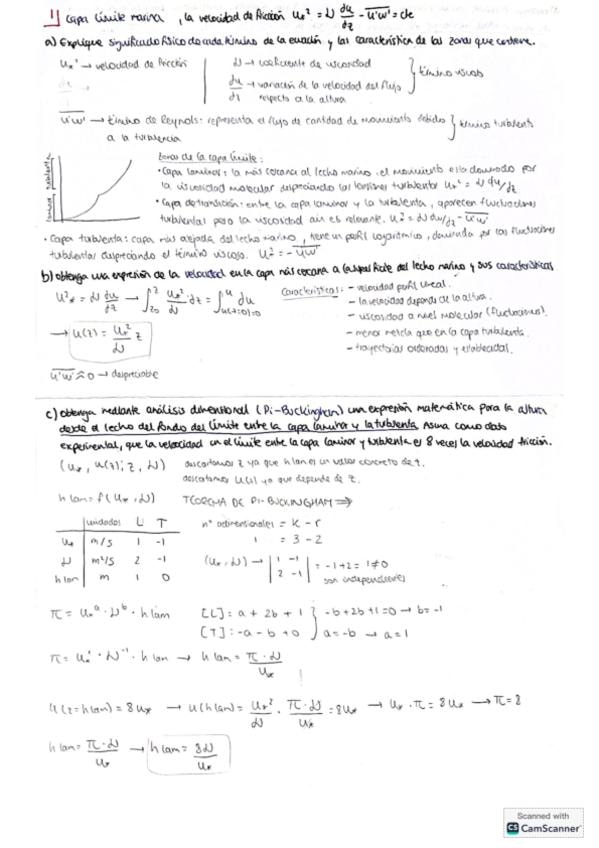 1) Capa límite marina, la velocidad de fricción u*² = ν du/dz - u'w' = cte
a) Explique significado físico de cada término de la ecuación y las característica de las zonas que contiene.
u* → velocidad de fricción
ν → coeficiente de viscosidad
du/dz → variación de la velocidad del flujo respecto a la altura
} término viscoso
u'w' → término de Reynols: representa el flujo de cantidad de movimiento debidos a la turbulencia } término turbulento
Zonas de la capa límite:
· Capa laminar: la más cercana al lecho marino, el movimiento esta dominado por
la viscosidad molecular despreciando las tensiones turbulentas u*² = ν du/dz
· Capa de transición: entre la capa laminar y la turbulenta, aparecen fluctuaciones
turbulentas pero la viscosidad aún es relevante. u*² = ν du/dz - u'w'
· Capa turbulenta: capa más alejada del lecho marino, tiene un perfil logarítmico, dominada por las fluctuaciones
turbulentas despreciando el término viscoso. u*² = - u'w'
b) Obtenga una expresión de la velocidad en la capa más cercana a la superficie del lecho marino y sus características
u*² = ν du/dz → ∫ u*²/ν dz = ∫ du
Características: - velocidad perfil lineal.
- la velocidad depende de la altura.
→ u(z) = u*²/ν z
- viscosidad a nivel molecular (fluctuaciones).
- menor mezcla que en la capa turbulenta.
- trayectorias ordenadas y establecidas.
u'w' ≈ 0 → despreciable
c) Obtenga mediante análisis dimensional (Pi-Buckingham) una expresión matemática para la altura
desde el lecho del fondo del límite entre la capa laminar y la turbulenta. Asuma como dato
experimental, que la velocidad en el límite entre la capa laminar y turbulenta es 8 veces la velocidad fricción.
(u*, u(z); z, ν) descartamos z ya que hlam es un valor concreto de z.
descatamos u(z) ya que depende de z.
hlam = f(u*, ν) TEOREMA DE PI-BUCKINGHAM ⇒
unidades L T
u* m/s 1 -1
ν m²/s 2 -1
hlam m 1 0
nº adimensionales = k - r
1 = 3 - 2
(u*, ν) → |1 -1; 2 -1| = -1+2 = 1 ≠ 0
son independientes
π = u*ᵃ · νᵇ · hlam
[L]: a + 2b + 1 } -b + 2b + 1 = 0 → b = -1
[T]: -a - b + 0 } a = -b → a = 1
π = u*¹ · ν⁻¹ · hlam → hlam = π·ν/u*
u(z=hlam) = 8u* → u(hlam) = u*²/ν · π·ν/u* = 8u* → u* · π = 8u* → π = 8
hlam = π·ν/u* → hlam = 8ν/u*
Scanned with
CS CamScanner